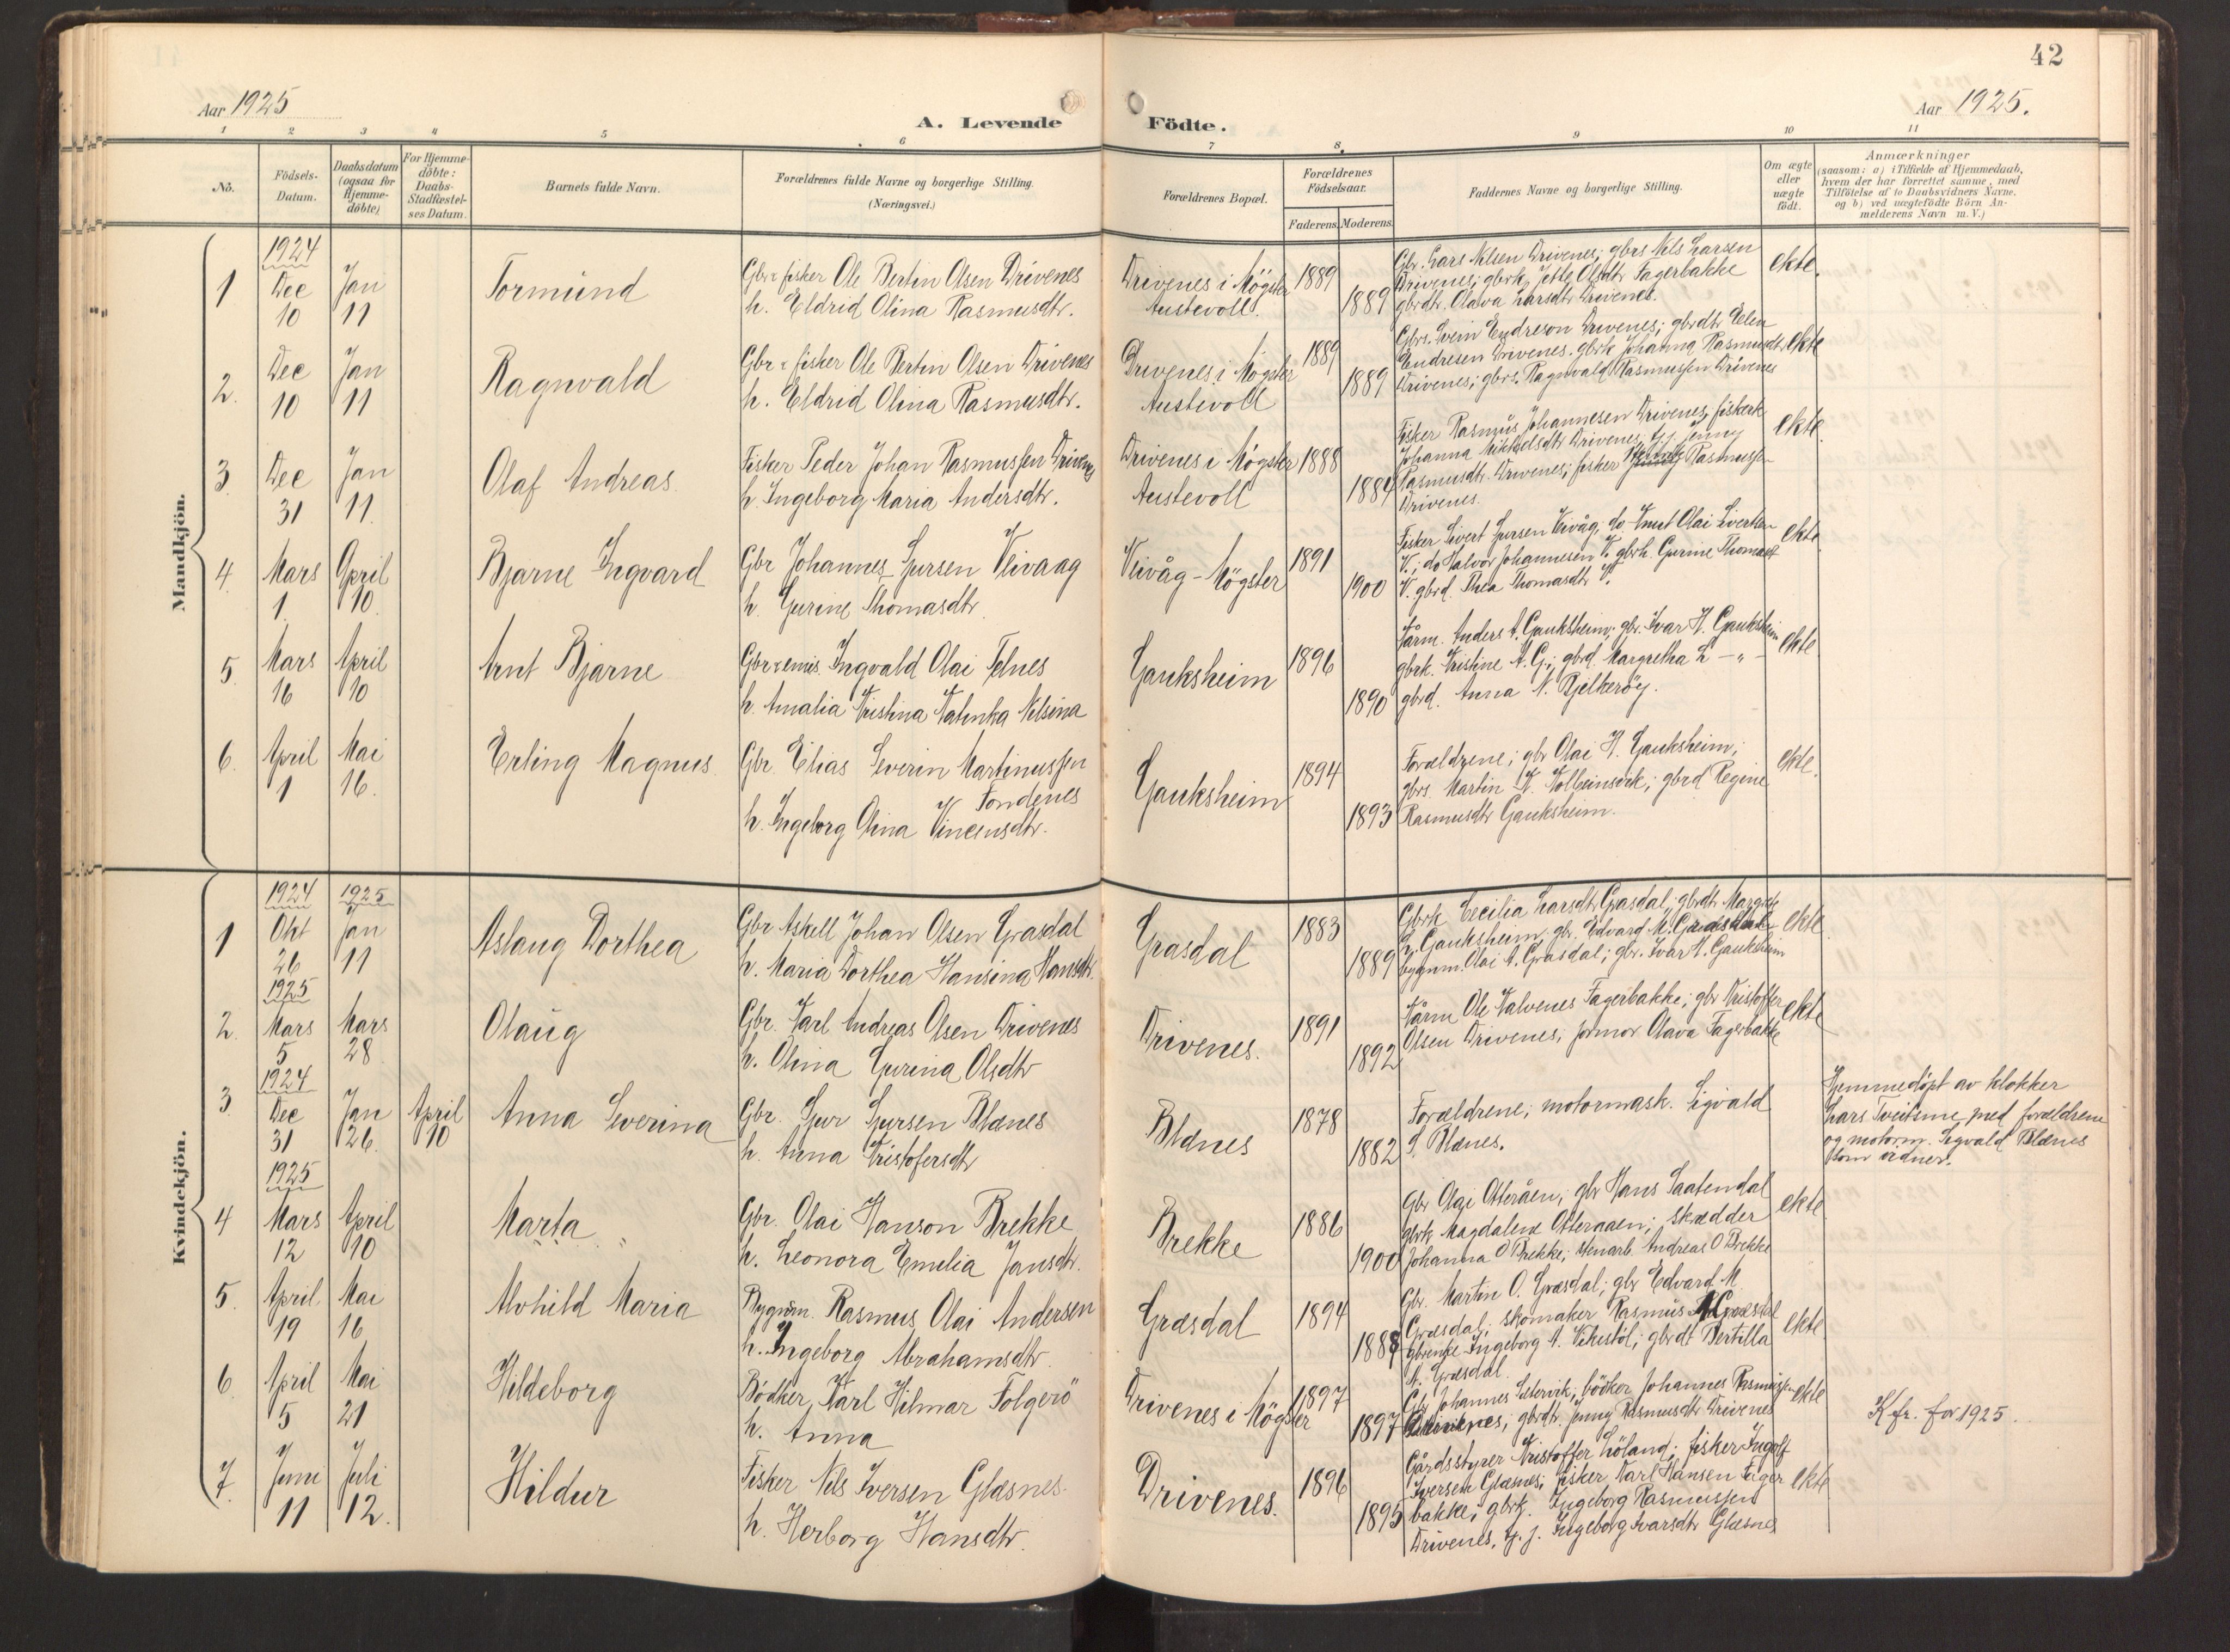 42
Aar 1925
A. Levende Födte.
Aar 1925.
1 2 3 4 5 6 7 8. 9 10 11
No.
Födsels-
Datum.
Daabsdatum
(ogsaa for
Hjemme-
döbte)
For Hjemme-
döbte:
Daabs-
Stadfæstel-
ses Datum.
Barnets fulde Navn.
Forældrenes fulde Navne og borgerlige Stilling.
(Næringsvei.)
Forældrenes Bopæl.
Forældrenes
Födselsaar.
Faderens. Moderens.
Faddernes Navne og borgerlige Stilling.
Om ægte
eller
uægte
födt.
Anmærkninger
(saasom: a) i Tilfælde af Hjemmedaab,
hvem der har forrettet samme, med
Tilföielse af to Daabsvidners Navne.
og b) ved uægtefödte Börn An-
melderens Navn m. V.)
Mandkjön.
1
1924
Dec
10
Jan
11
Tormund
Gbr & fisker Ole Bertin Olsen Drivenes
h. Eldrid Olina Rasmusdtr.
Drivenes i Mögster
Austevoll.
1889
1889
Gbr. Lars Nilsen Drivenes; gbrs Nils Larsen
Drivenes; gbrk Jette Olsdtr Fagerbakke
gbrdtr. Olava Larsdtr Drivenes.
ekte.
2.
Dec
10
Jan
11
Ragnvald
Gbr & fisker Ole Bertin Olsen Drivenes
h. Eldrid Olina Rasmusdtr.
Drivenes i Mögster
Austevoll
1889
1889
Gbrs. Svein Endreson Drivenes; gbrdtr Elen
Endresen Drivenes. gbrk Johanna Rasmusdtr
Drivenes; gbrs. Ragnvald Rasmussen Drivenes
ekte
3
Dec
31
Jan
11.
Olaf Andreas.
Fisker Peder Johan Rasmussen Drivenes
h. Ingeborg Maria Andersdtr.
Drivenes i Mögster
Austevoll
1888
1884
Fisker Rasmus Johannesen Drivenes, fiskerk
Johanna Mikkelsdtr Drivenes, tj. j. Jenny
Rasmusdtr. Drivenes; fisker Rasmussen
Drivenes.
ekte.
4.
Mars
1.
April
10.
Bjarne Ingvard
Gbr Johannes Sjursen Veivaag
h. Gurine Thomasdtr
Veivåg - Mögster
1891
1900
Fisker Sivert Sjursen Veivåg; do Knut Olai Sivertsen
V.; do Halvor Johannesen V. gbrk. Gurine Thomasdtr
V. gbrd. Thea Thomasdtr V.
ekte.
5.
Mars
16
April
10
Arnt Bjarne
Gbr & emis. Ingvald Olai Folnes
h. Amalia Kristina Katinka Nilsina
Gauksheim
1896
1890
Kårm. Anders A. Gauksheim; gbr. Ivar A. Gauksheim
gbrk. Kristine A. G.; gbrd. Margretha L — „ —
gbrd. Anna N. Kjelkeröy.
ekte
6.
April
1
Mai
16.
Erling Magnus.
Gbr Elias Severin Martinussen
Fondenes
h. Ingeborg Olina Vincensdtr.
Gauksheim
1894
1893
Forældrene; gbr Olai H. Gauksheim;
gbrs. Martin K. Kolbeinsvik; gbrd Regine
Rasmusdtr Gauksheim.
ekte.
Kvindekjön.
1
1924
Okt
26
1925
Jan
11
Aslaug Dorthea
Gbr Askell Johan Olsen Grasdal
h. Maria Dorthea Hansina Hansdtr.
Grasdal
1883
1889
Gbrk Cecilia Larsdtr Grasdal, gbrdtr Margrete
L. Gauksheim; gbr. Edvard M. Grasdal
bygnm. Olai A. Grasdal; gbr. Ivar A. Gauksheim
ekte.
2.
1925
Mars
5
Mars
28
Olaug
Gbr. Karl Andreas Olsen Drivenes
h. Olina Gurina Olsdtr
Drivenes.
1891
1892
Kårm Ole Kalvenes Fagerbakke; gbr Kristoffer
Olsen Drivenes, formor Olava Fagerbakke
ekte
3
1924
Dec
31
Jan
26.
April
10
Anna Severina
Gbr. Sjur Sjursen Blænes
h. Anna Kristofersdtr
Blænes
1878
1882
Forældrene; motormask. Sigvald
S. Blænes.
Hjemmedöpt av klokker
Lars Tveitsme med forældrene
og motorm. Sigvald Blænes
som vidner.
4
1925
Mars
12
April
10
Marta
Gbr. Olai Hanson Brekke
h. Leonora Emelia Jansdtr.
Brekke
1886
1900
Gbr Olai Otteråen; gbr Hans Saatendal
gbrk Magdalene Otteraaen; skædder
Johanna O Brekke; stenarb. Andreas O Brekke
ekte.
5.
April
19
Mai
16
Alvhild Maria
Bygnm. Rasmus Olai Andersen
h. Ingeborg Abrahamsdtr.
Græsdal
1894
1888
Gbr. Martin O. Græsdal; gbr Edvard M.
Græsdal; skomaker Rasmus A Græsdal
gbrenke Ingeborg A. Vikestöl; gbrdt Bertilla
N. Græsdal.
ekte
6
April
5
Mai
21
Hildeborg
Bödker Karl Hilmar Folgerö
h. Anna
Drivenes i Mögster
1897
1897
Gbr Johannes Sætervik; bödker Johannes Rasmussen
Drivenes; gbrdtr. Jenny Rasmusdtr Drivenes
ekte
Kfr. for 1925.
7.
Juni
11
Juli
12.
Hildur
Fisker Nils Iversen Glæsnes.
h. Herborg Hansdtr.
Drivenes.
1896
1895
Gårdsstyrer Kristoffer Löland; fisker Ingolf
Iversen Glæsnes; fisker Karl Hansen Fager
bakke; gbrk. Ingeborg Rasmussen
Drivenes, tj. j. Ingeborg Ivarsdtr Glæsnes
ekte